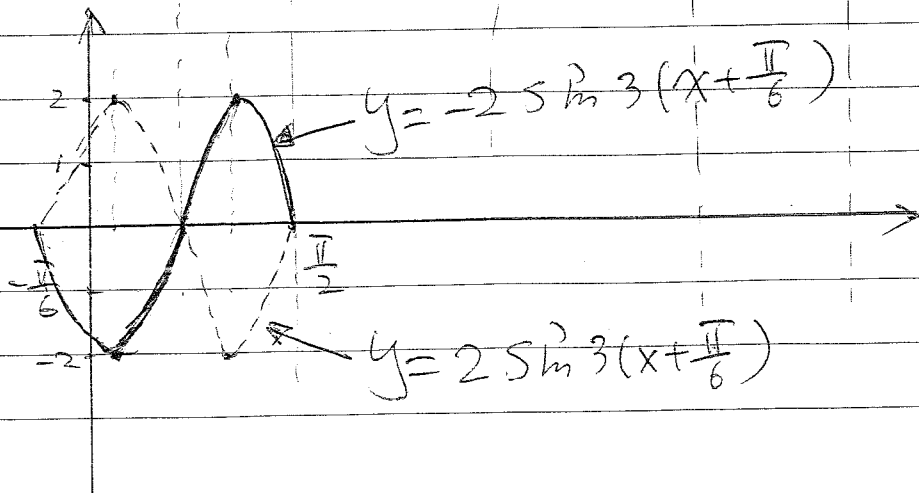 2
y = -2 sin 3(x + π/6)
1
-π/6
π/2
-2
y = 2 sin 3(x + π/6)